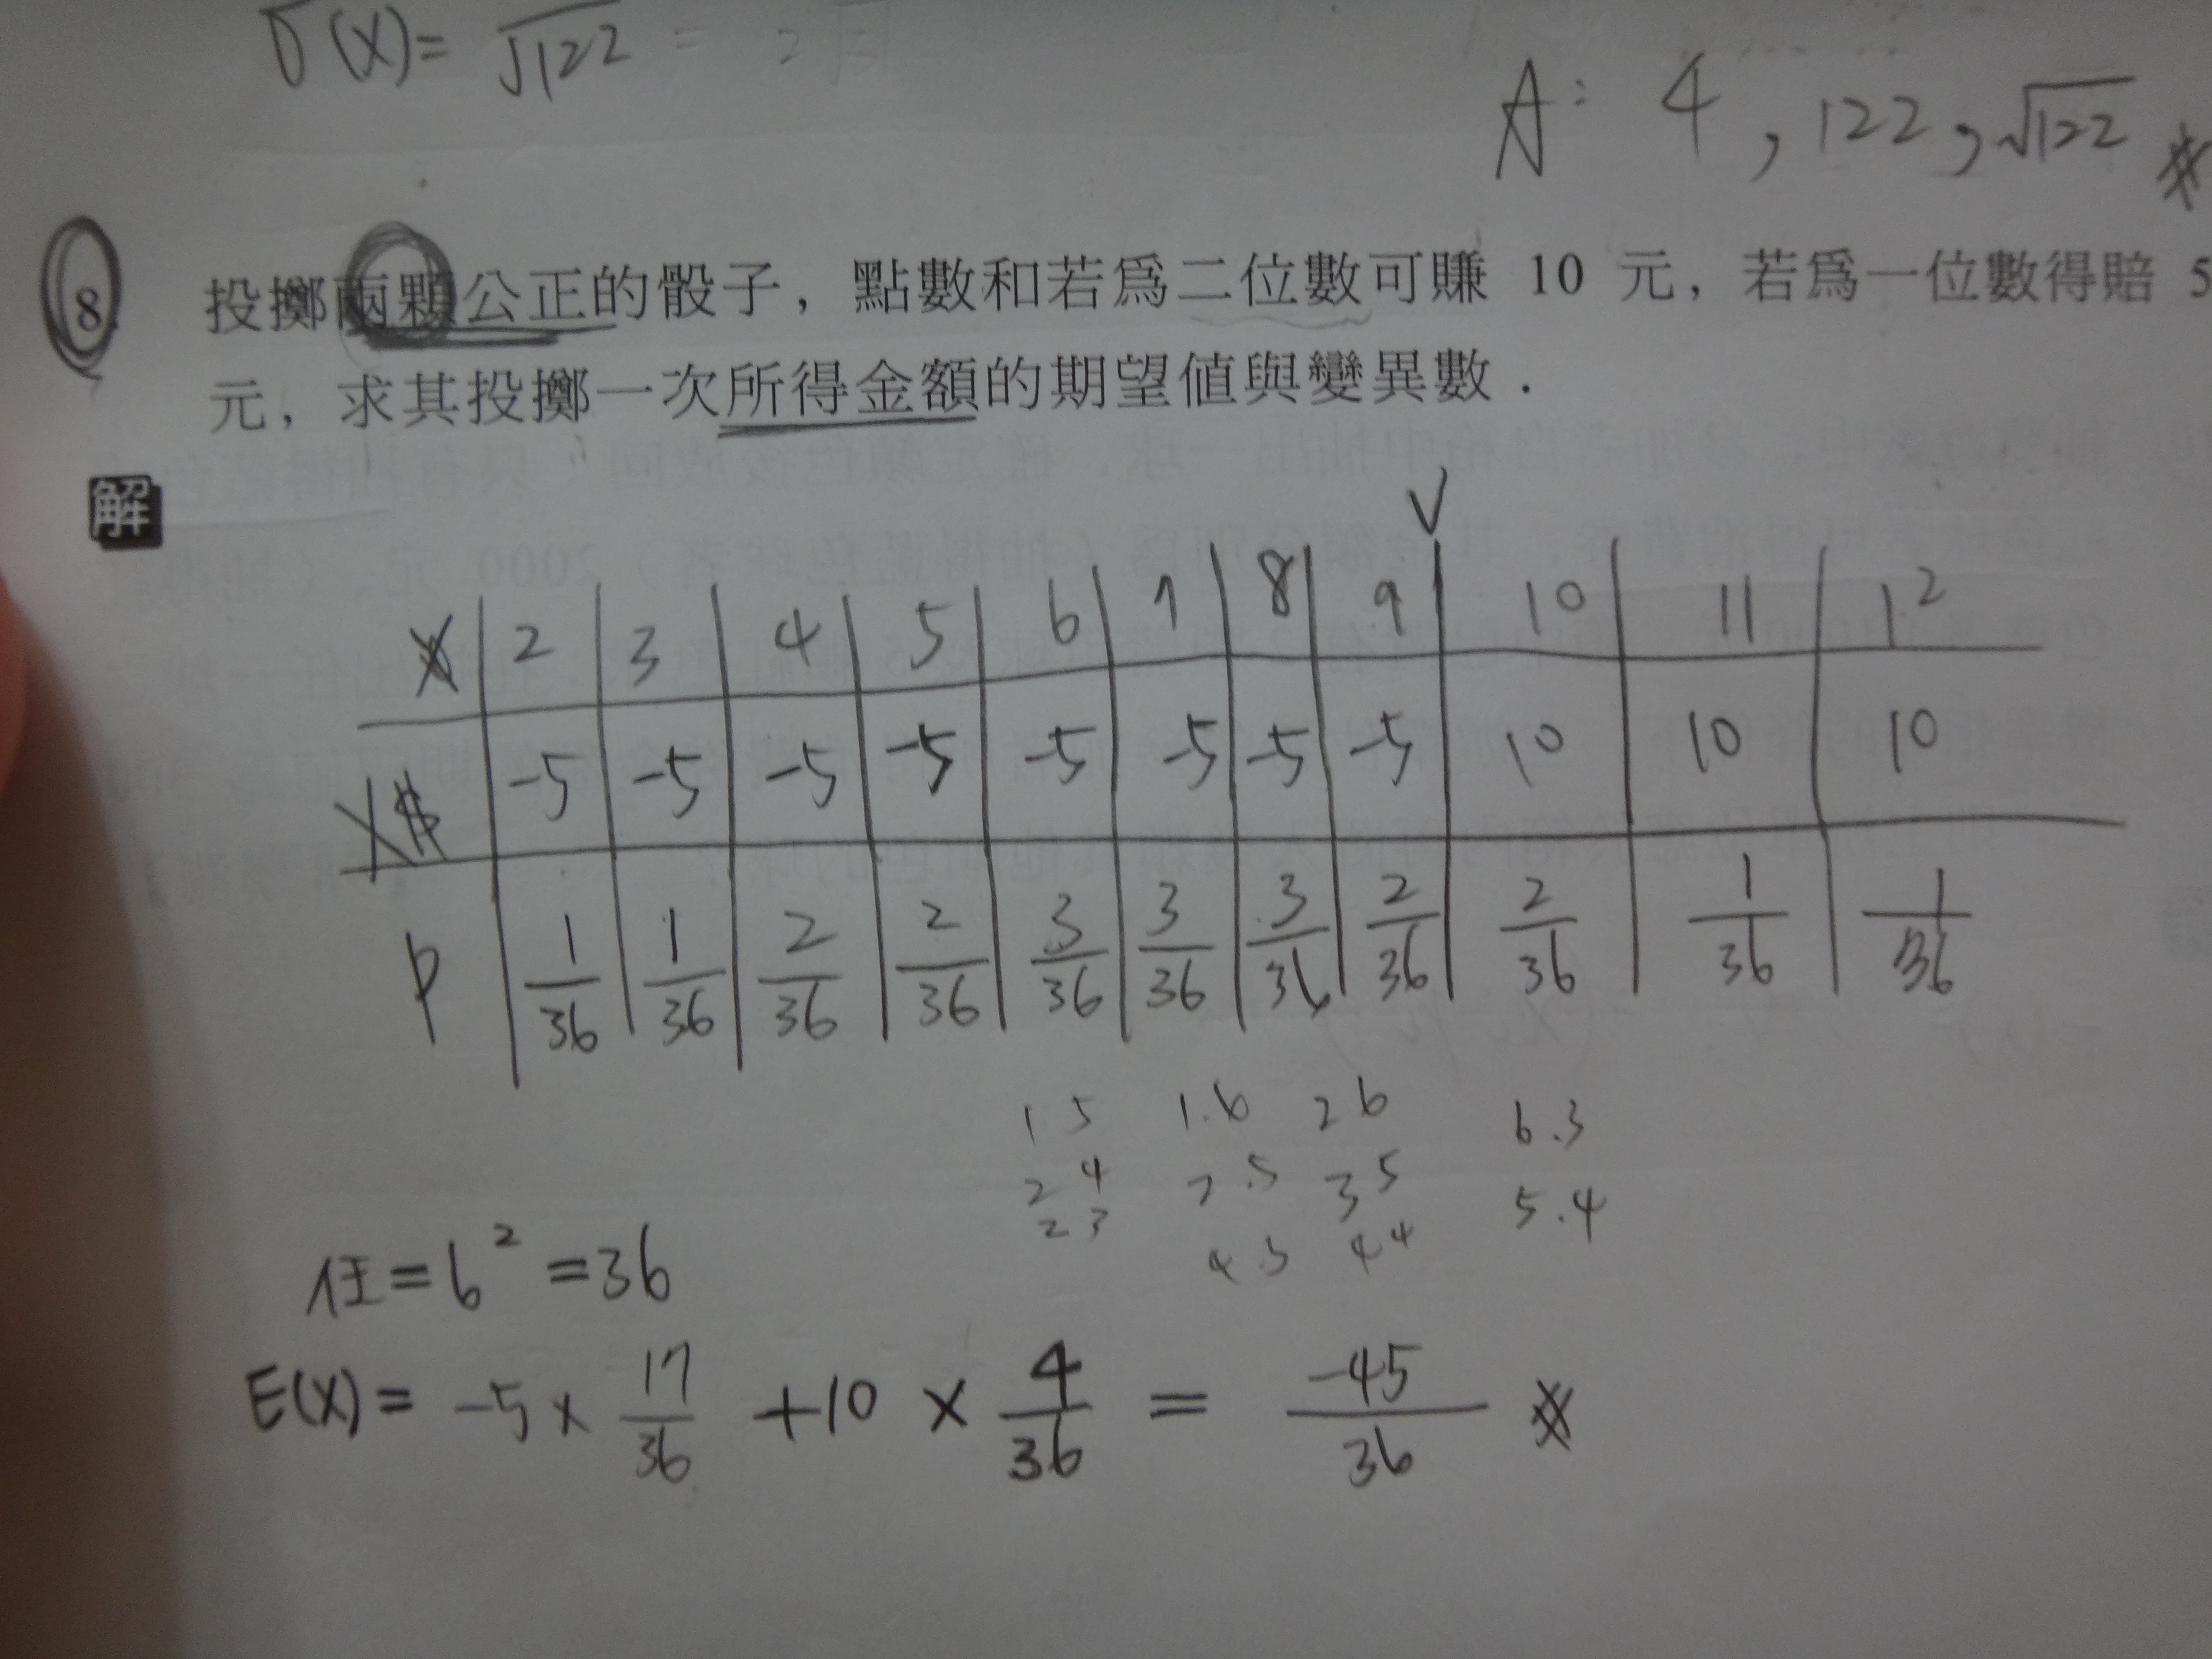 σ(X)= √122 =
A: 4 , 122 , √122
8. 投擲兩顆公正的骰子，點數和若爲二位數可賺 10 元，若爲一位數得賠 5
元，求其投擲一次所得金額的期望値與變異數．
解
V
X 2 3 4 5 6 7 8 9 10 11 12
X$ -5 -5 -5 -5 -5 -5 -5 -5 10 10 10
P 1/36 1/36 2/36 2/36 3/36 3/36 3/36 2/36 2/36 1/36 1/36
1 5 1.6 2 6 6.3
2 4 2.5 3 5 5.4
2 3 4.3 4 4
任=6²=36
E(X)= -5 × 17/36 +10 × 4/36 = -45/36